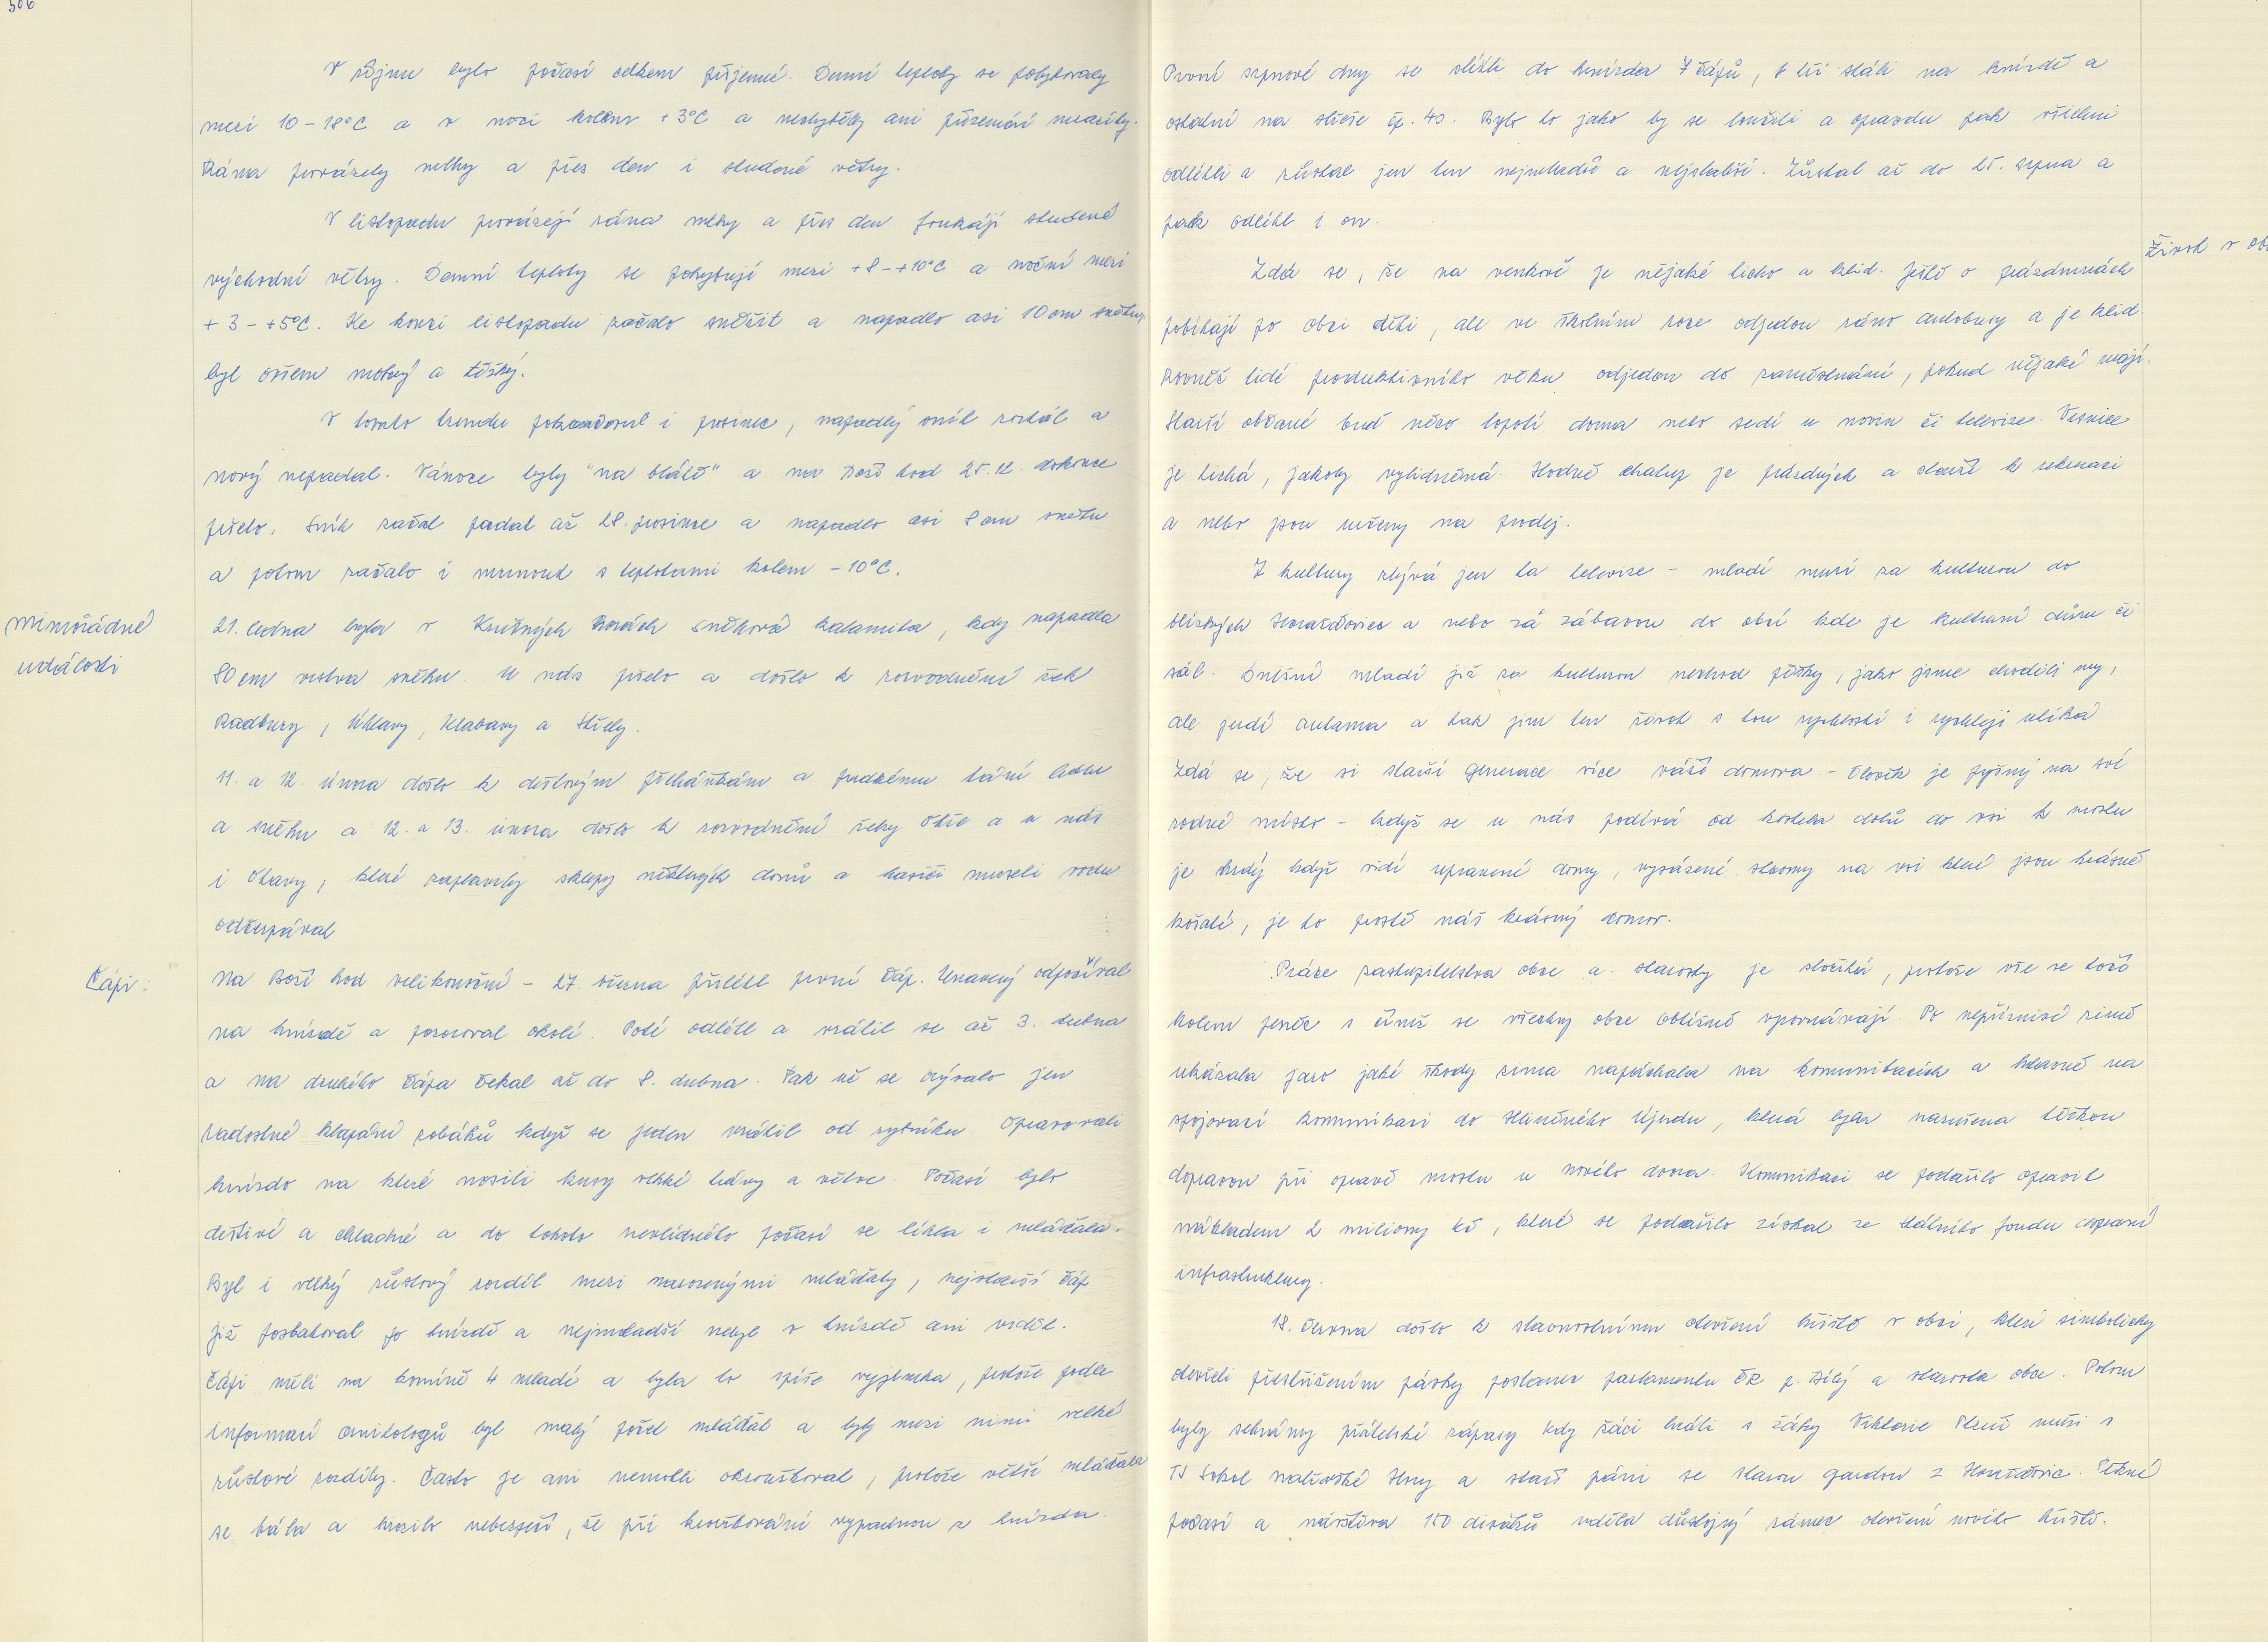 506
V říjnu bylo počasí celkem příjemné. Denní teploty se pohybovaly
mezi 10-18°C a v noci kolem +3°C a nechyběly ani přízemní mrazíky.
Rána provázely mlhy a přes den i studené větry.
V listopadu provázejí rána mlhy a přes den foukají studené
východní větry. Denní teploty se pohybují mezi +8-+10°C a noční mezi
+3-+5°C. Ke konci listopadu začalo sněžit a napadlo asi 10 cm sněhu,
byl ovšem mokrý a těžký.
V tomto trendu pokračoval i prosinec, napadlý sníh roztál a
nový nepadal. Vánoce byly "na blátě" a na Boží hod 25.12. dokonce
pršelo. Sníh začal padat až 28. prosince a napadlo asi 8 cm sněhu
a potom začalo i mrznout s teplotami kolem -10°C.
Mimořádné
události
21. ledna byla v Krušných horách sněhová kalamita, kdy napadla
80 cm vrstva sněhu. U nás pršelo a došlo k rozvodnění řek
Radbuzy, Úhlavy, Klabavy a Střely.
11. a 12. února došlo k dešťovým přeháňkám a prudkému tání ledu
a sněhu a 12. a 13. února došlo k rozvodnění řeky Ohře a u nás
i Otavy, které zaplavily sklepy některých domů a hasiči museli vodu
odčerpávat
Čápi:
Na Boží hod velikonoční - 27. března přilétl první čáp. Unavený odpočíval
na hnízdě a pozoroval okolí. Poté odlétl a vrátil se až 3. dubna
a na druhého čápa čekal až do 8. dubna. Pak už se ozývalo jen
radostné klapání zobáků když se jeden vrátil od rybníku. Opravovali
hnízdo na které nosili kusy vlhké trávy a větve. Počasí bylo
deštivé a chladné a do tohoto nevlídného počasí se líhla i mláďata.
Byl i velký růstový rozdíl mezi narozenými mláďaty, nejstarší čáp
již poskakoval po hnízdě a nejmladší nebyl v hnízdě ani vidět.
Čápi měli na komíně 4 mladé a byla to spíše vyjímka, protože podle
informací ornitologů byl malý počet mláďat a byly mezi nimi velké
růstové rozdíly. Často je ani nemohli okroužkovat, protože větší mláďata
se bála a hrozilo nebezpečí, že při kroužkování vypadnou z hnízda.
První srpnové dny se slétli do hnízda 7 čápů, tři stáli na hnízdě a
ostatní na střeše čp. 40. Bylo to jako by se loučili a opravdu pak všichni
odlétli a zůstal jen ten nejmladší a nejslabší. Zůstal až do 25. srpna a
pak odlétl i on.
Život v ob
Zdá se, že na venkově je nějaké ticho a klid. Ještě o prázdninách
pobíhají po obci děti, ale ve školním roce odjedou ráno autobusy a je klid.
Rovněž lidé produktivního věku odjedou do zaměstnání, pokud nějaké mají.
Starší občané buď něco kopolí doma nebo sedí u novin či televize. Vesnice
je tichá, jakoby vylidněná. Hodně chalup je prázdných a slouží k rekreaci
a nebo jsou určeny na prodej.
Z kultury zbývá jen ta televize - mladí musí za kulturou do
blízkých Horažďovice a nebo za zábavou do obcí kde je kulturní dům či
sál. Dnešní mladí již za kulturou nechod pěšky, jako jsme chodili my,
ale jezdí autama a tak jim ten život s tou rychlostí i rychleji utíká
Zdá se, že si starší generace více váží domova. - Člověk je pyšný na své
rodné místo - když se u nás podívá od kostela dolů do vsi k mostu
je hrdý když vidí upravené domy, vysázené stromy na vsi které jsou krásně
košaté, je to prostě náš krásný domov.
Práce zastupitelstva obce a starosty je složitá, protože vše se točí
kolem peněz s čímž se všechny obce obtížně vyrovnávají. Po nepříznivé zimě
ukázalo jaro jaké škody zima napáchala na komunikacích a hlavně na
spojovací komunikaci do Hliněného Újezdu, která byla narušena těžkou
dopravou při opravě mostu u nového dvora. Komunikaci se podařilo opravit
nákladem 2 miliony Kč, které se podařilo získat ze státního fondu dopravní
infrastruktury.
18. června došlo k slavnostnímu otevření hřiště v obci, které simbolicky
otevřeli přestřižením pásky poslanec parlamentu ČR p. Bílý a starosta obce. Potom
byly sehrány přátelské zápasy kdy žáci hráli s žáky Viktorie Plzeň muži s
TJ Sokol Malívské Hory a staří páni se starou gardou z Horažďovic. Pěkné
počasí a návštěva 150 diváků udělala důstojný rámec otevření nového hřiště.